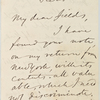 My dear Fields,
I have
found your note
on my return from
New York with its
contents; all valu-
able, which I am
not